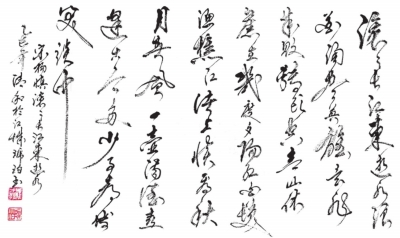 滚々长江東逝水浪
花淘尽英雄是非
成败转头空青山依
旧在几度夕阳红白髮
渔樵江渚上惯看秋
月春风一壶濁酒喜相
逢古今多少事都付
笑谈中
杨慎滚々长江東逝水
乙巳年於江城书